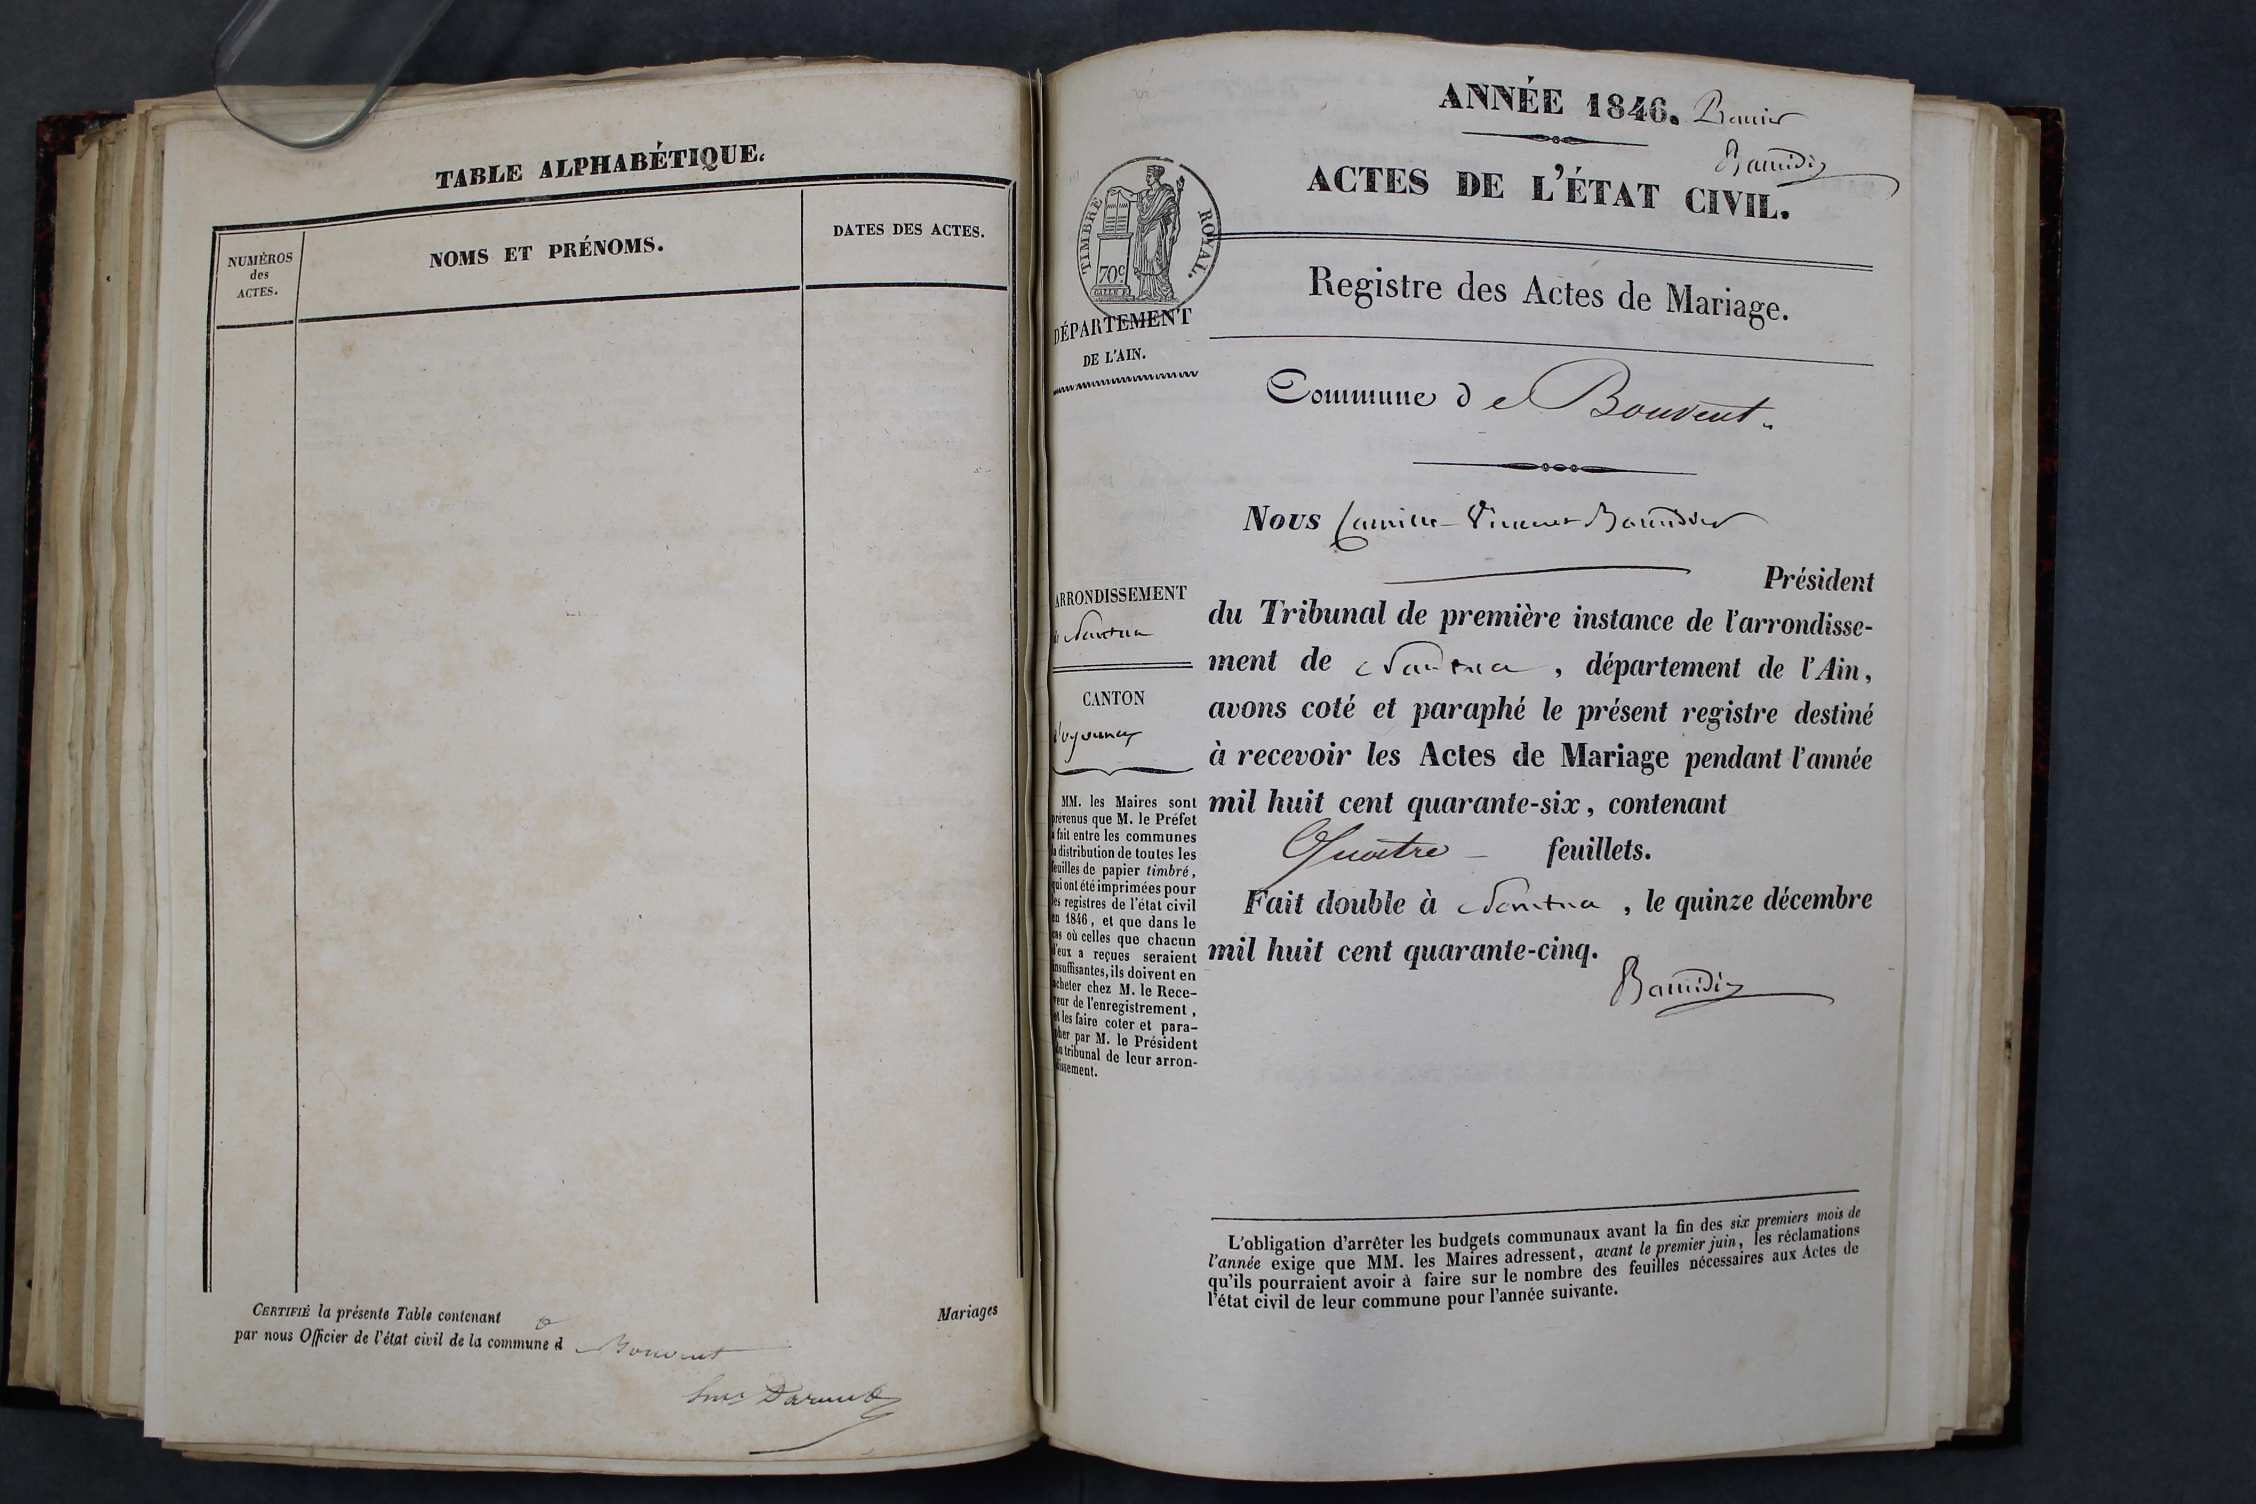 TABLE ALPHABÉTIQUE.
NUMÉROS
des
ACTES.
NOMS ET PRÉNOMS.
DATES DES ACTES.
CERTIFIÉ la présente Table contenant Mariages
par nous Officier de l'état civil de la commune d Bouvent
ANNÉE 1846.
ACTES DE L'ÉTAT CIVIL.
TIMBRE ROYAL.
70c
Registre des Actes de Mariage.
DÉPARTEMENT
DE L'AIN.
Commune de Bouvent.
Nous Camille Vincent
Président
du Tribunal de première instance de l'arrondisse-
ment de Nantua, département de l'Ain,
avons coté et paraphé le présent registre destiné
à recevoir les Actes de Mariage pendant l'année
mil huit cent quarante-six, contenant
Quatre feuillets.
Fait double à Nantua, le quinze décembre
mil huit cent quarante-cinq.
ARRONDISSEMENT
de Nantua
CANTON
d'oyonnax
MM. les Maires sont
prévenus que M. le Préfet
a fait entre les communes
la distribution de toutes les
feuilles de papier timbré,
qui ont été imprimées pour
les registres de l'état civil
en 1846, et que dans le
cas où celles que chacun
d'eux a reçues seraient
insuffisantes, ils doivent en
acheter chez M. le Rece-
veur de l'enregistrement,
et les faire coter et para-
pher par M. le Président
du tribunal de leur arron-
dissement.
L'obligation d'arrêter les budgets communaux avant la fin des six premiers mois de
l'année exige que MM. les Maires adressent, avant le premier juin, les réclamations
qu'ils pourraient avoir à faire sur le nombre des feuilles nécessaires aux Actes de
l'état civil de leur commune pour l'année suivante.